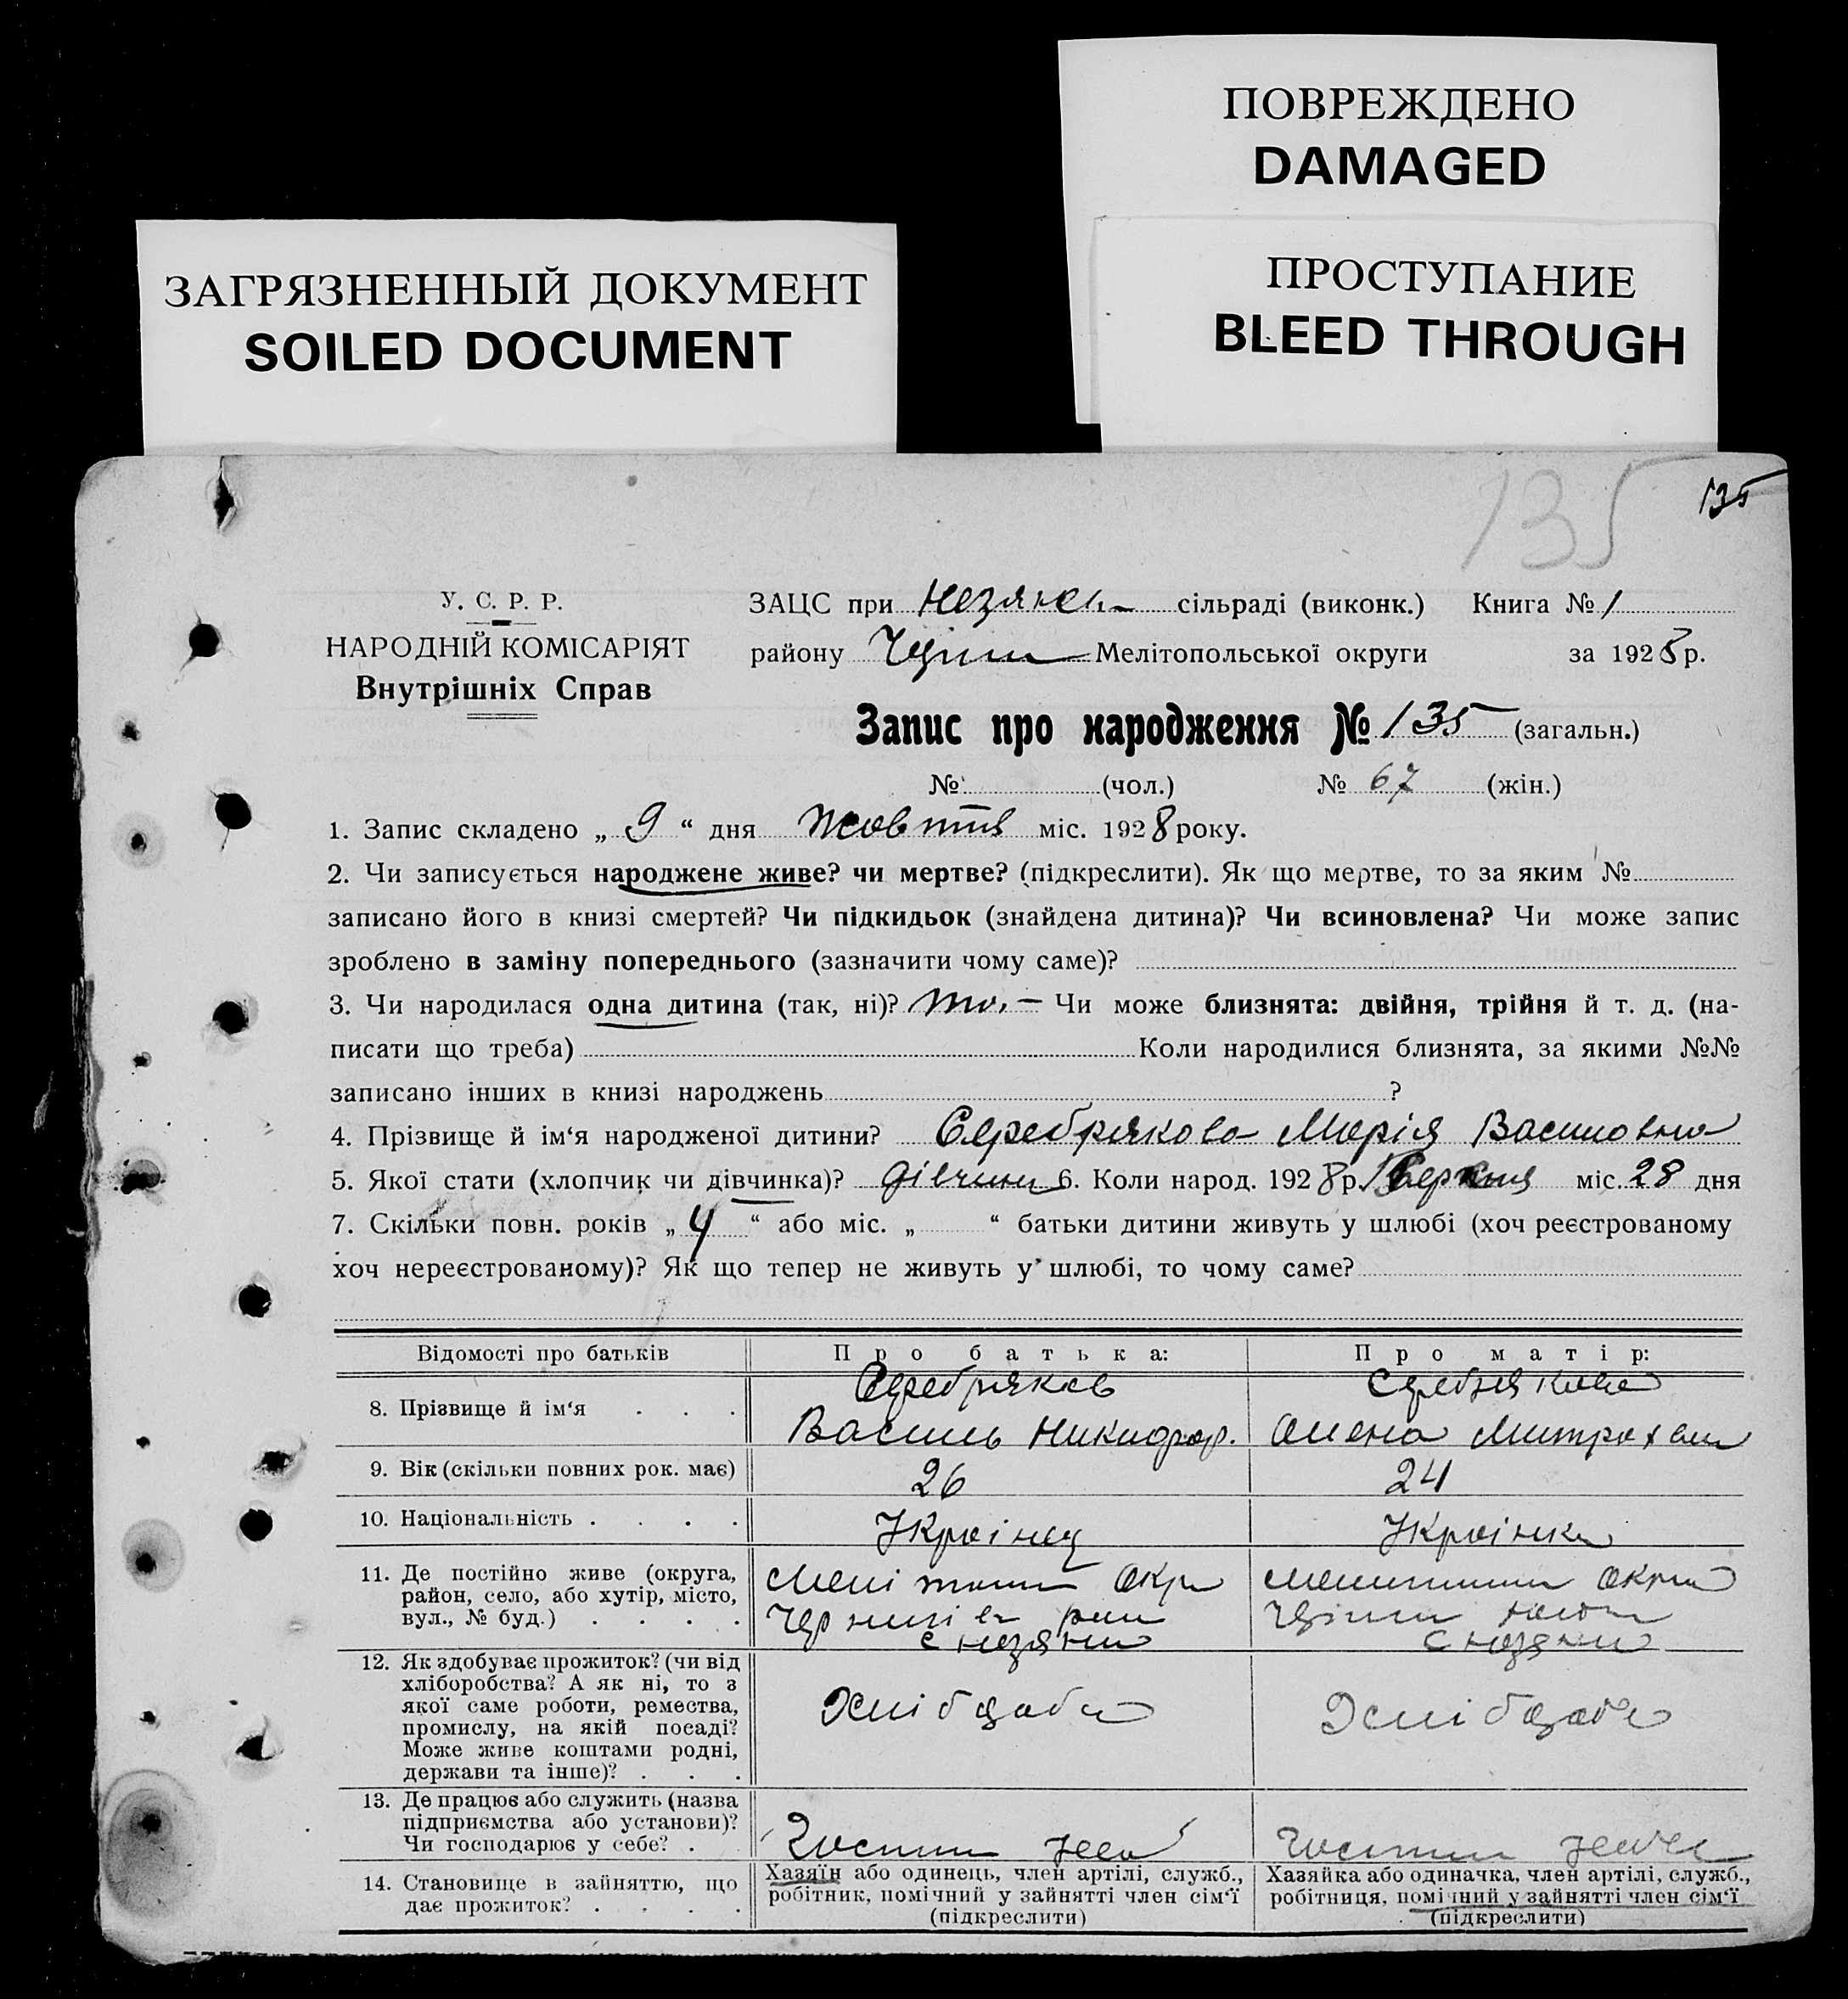 ПОВРЕЖДЕНО
DAMAGED
ЗАГРЯЗНЕННЫЙ ДОКУМЕНТ
SOILED DOCUMENT
ПРОСТУПАНИЕ
BLEED THROUGH
135 135
У. С. Р. Р.
НАРОДНІЙ КОМІСАРІЯТ
Внутрішніх Справ
ЗАЦС при сільраді (виконк.) Книга № 1
району Мелітопольської округи за 1928 р.
Запис про народження № 135 (загальн.)
№ (чол.) № 67 (жін.)
1. Запис складено „ 9 “ дня Жовтня міс. 1928 року.
2. Чи записується народжене живе? чи мертве? (підкреслити). Як що мертве, то за яким №
записано його в книзі смертей? Чи підкидьок (знайдена дитина)? Чи всиновлена? Чи може запис
зроблено в заміну попереднього (зазначити чому саме)?
3. Чи народилася одна дитина (так, ні)? Чи може близнята: двійня, трійня й т. д. (на-
писати що треба) Коли народилися близнята, за якими №№
записано інших в книзі народжень ?
4. Прізвище й ім‘я народженої дитини? Серебрякова Марія Василовна
5. Якої стати (хлопчик чи дівчинка)? дівчина 6. Коли народ. 1928 р. міс. 28 дня
7. Скільки повн. років „ 4 “ або міс. „ “ батьки дитини живуть у шлюбі (хоч реєстрованому
хоч нереєстрованому)? Як що тепер не живуть у шлюбі, то чому саме?
Відомості про батьків Про батька: Про матір:
8. Прізвище й ім‘я Серебряков Василь Никифор. Серебрякова
9. Вік (скільки повних рок. має) 26 24
10. Національність Українец Українка
11. Де постійно живе (округа,
район, село, або хутір, місто,
вул., № буд.)
12. Як здобуває прожиток? (чи від
хліборобства? А як ні, то з
якої саме роботи, ремества,
промислу, на якій посаді?
Може живе коштами родні,
держави та інше)?
13. Де працює або служить (назва
підприємства або установи)?
Чи господарює у себе?
14. Становище в зайняттю, що
дає прожиток?
Хазяїн або одинець, член артілі, служб.,
робітник, помічний у зайнятті член сім‘ї
(підкреслити)
Хазяйка або одиначка, член артілі, служб.,
робітниця, помічний у зайнятті член сім‘ї
(підкреслити)